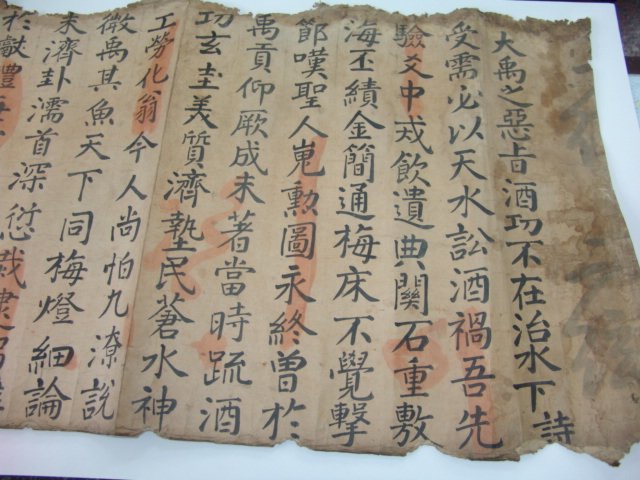 大禹之惡旨酒功不在治水下詩
受需必以天水訟酒禍吾先
驗爻中戒飲遺典關石重敷
海丕績金簡通梅床不覺擊
節嘆聖人嵬勳圖永終曾於
禹貢仰厥成未著當時疏酒
功玄圭美質濟墊民蒼水神
工勞化翁今人尚怕九潦說
微禹其魚天下同梅燈細論
未濟卦濡首深愆哉逮
於獻醴